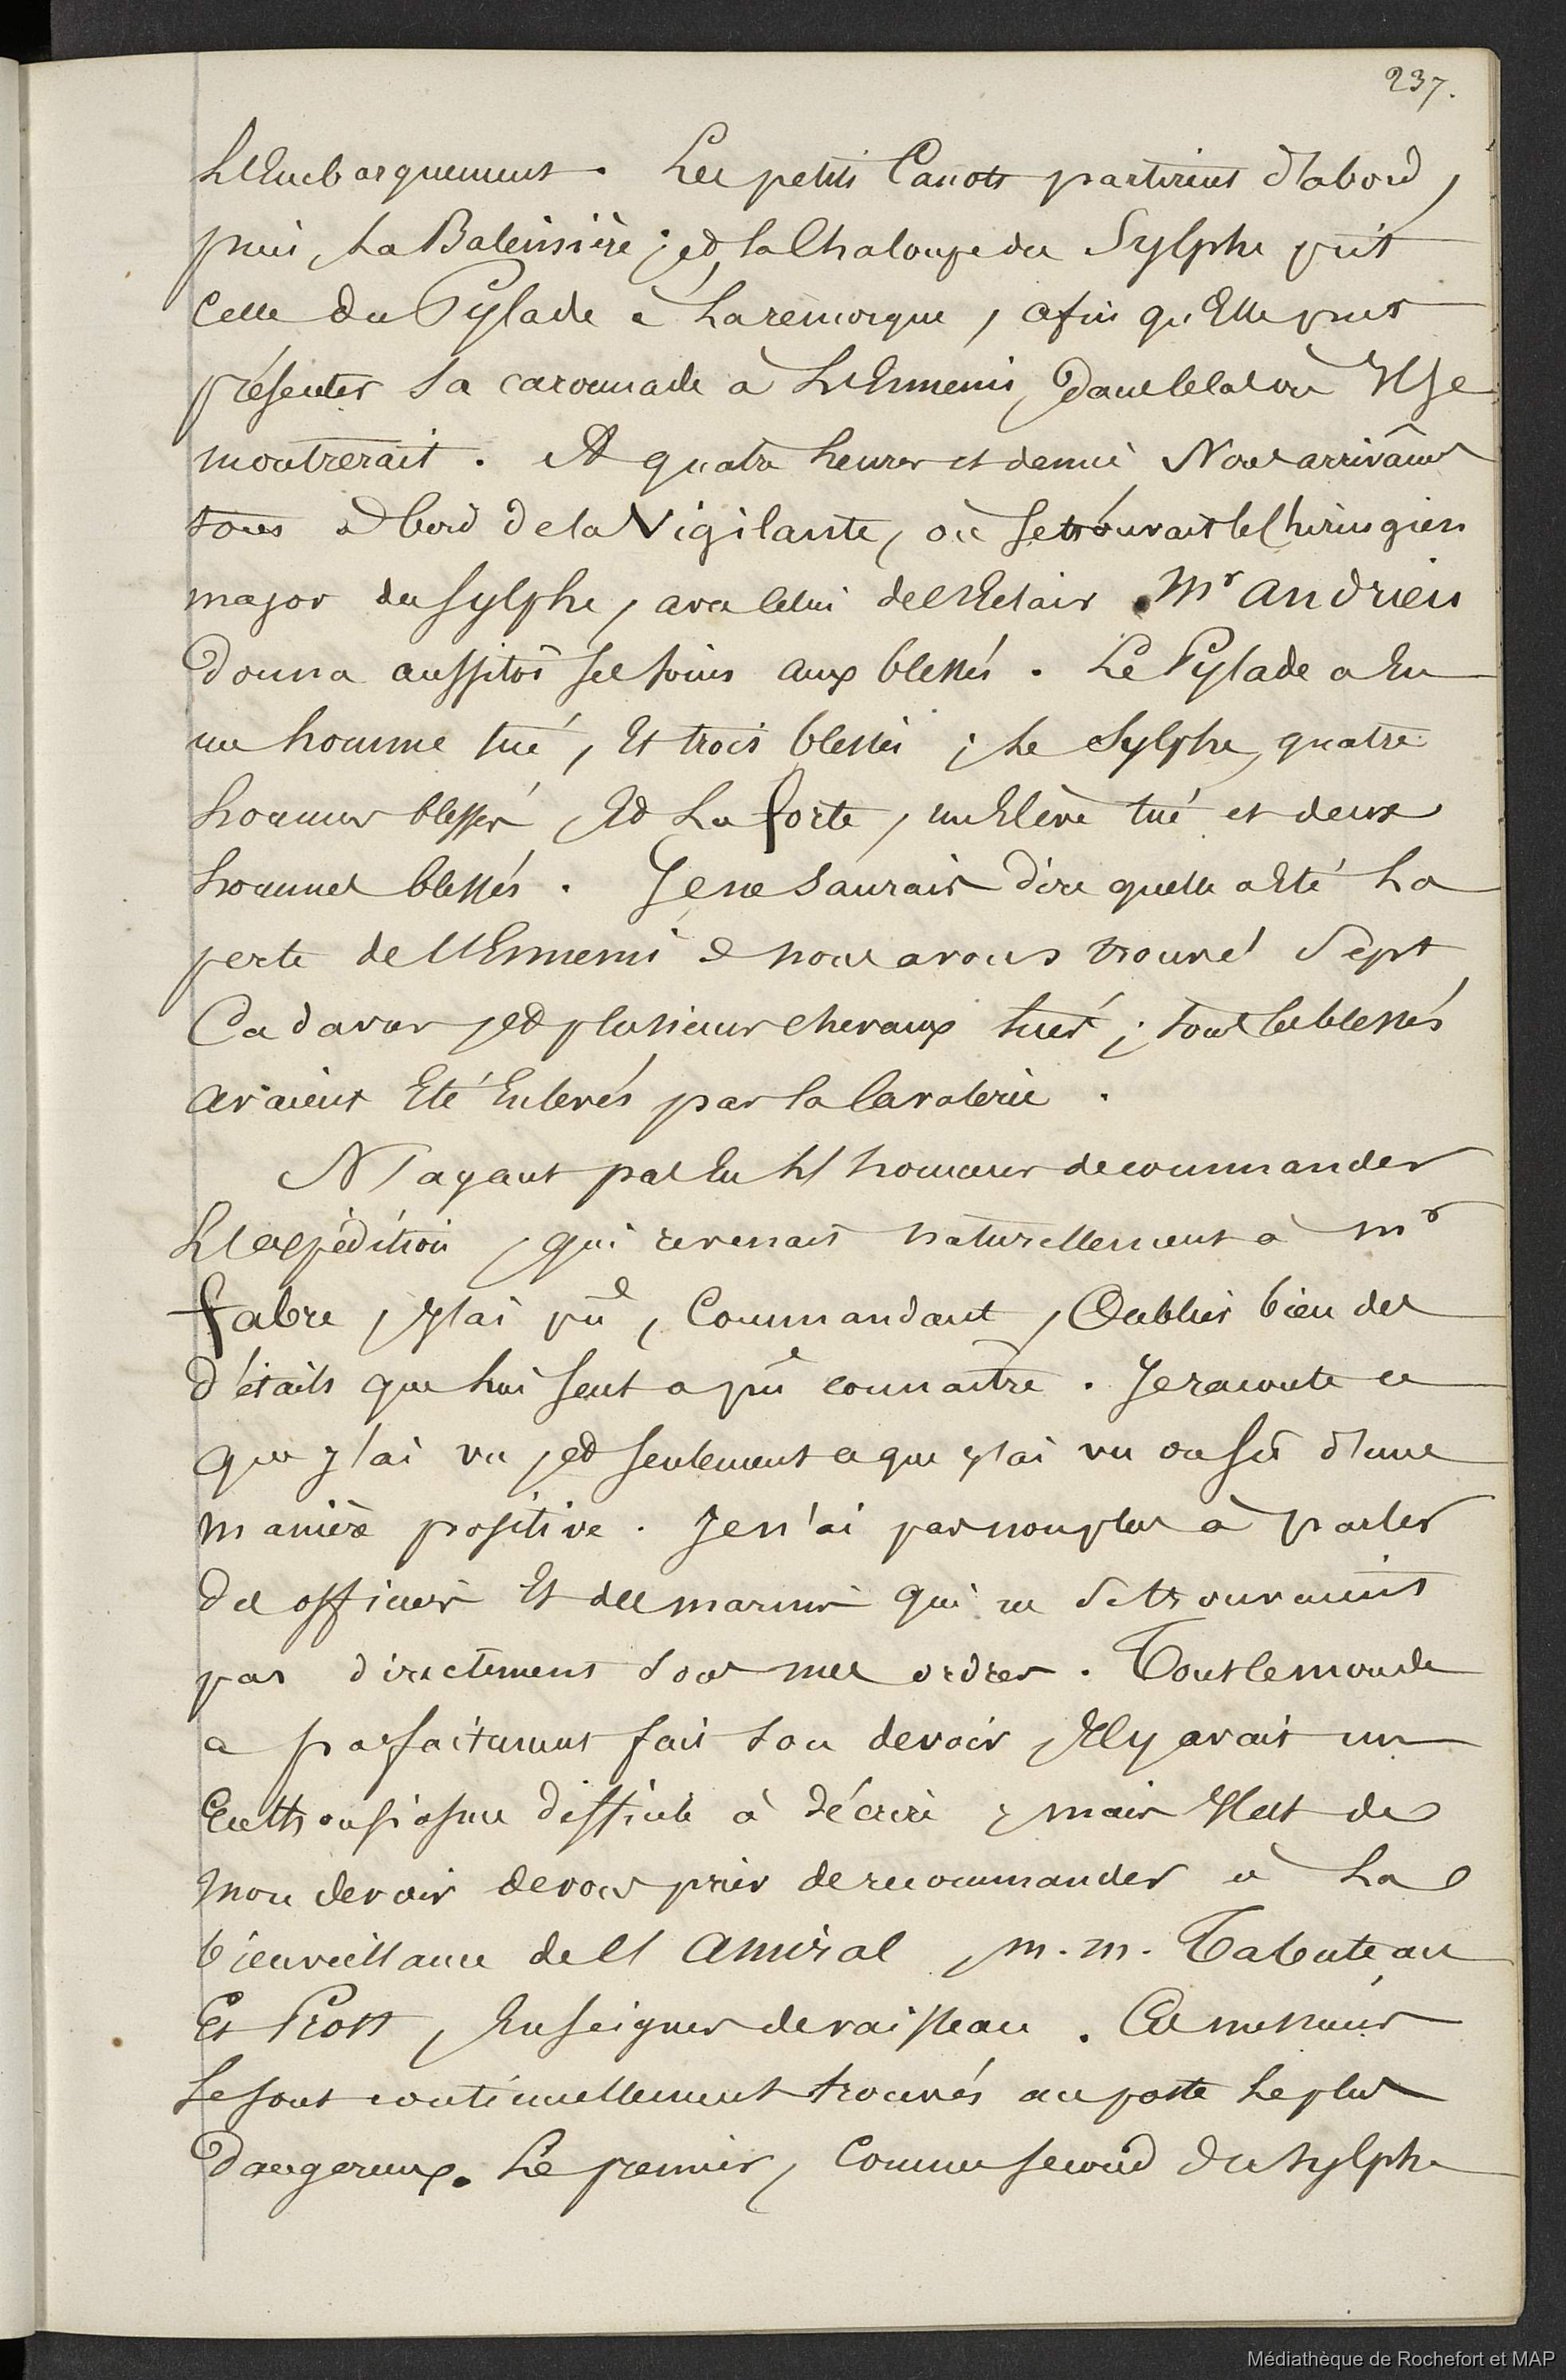 237.
L'Embarquement. Les petits Canots partirent d'abord,
puis, La Baleinière; et, la Chaloupe du Sylphe prit
Celle du Pylade à La remorque, afin qu'Elle put
présenter sa caronade à L'Ennemi, dans le cas où Il se
montrerait. A quatre heures et demie Nous arrivâmes
tous à bord de la Vigilante, où se trouvait le Chirurgien
major du Sylphe, avec celui de l'Eclair. Mr andrieu
donna aussitôt ses soins aux blessés. Le Pylade a Eu
un homme tué, Et trois blessés; Le Sylphe, quatre
hommes blessés, Et La forte, un Elève tué et deux
hommes blessés. Je ne saurais dire quelle a Eté La
perte de l'Ennemi & nous avons trouvé Sept
Cadavres, et plusieurs chevaux tués; tous les blessés
avaient Eté Enlevés par la Cavalerie.
N'ayant pas Eu l'honneur de commander
L'expédition, qui revenait naturellement à Mr
fabre, j'ai pû, Commandant, Oublier bien des
détails que lui seul a pû connaître. Je raconte ce
que j'ai vu, et seulement ce que j'ai vu ou sû d'une
manière positive. Je n'ai pas non plus à parler
des officiers Et des marins qui ne se trouvaient
pas directement sous mes ordres. Tout le monde
a parfaitement fait son devoir, Il y avait un
Enthousiasme difficile à décrire, mais Il est de
mon devoir de vous prier de recommander à La
bienveillance de l'Amiral, M.M. Tabuteau
Et Prost, Enseignes de vaisseau. Ces messieurs
se sont continuellement trouvés au poste le plus
Dangereux. Le premier, Comme second du Sylphe
Médiathèque de Rochefort et MAP